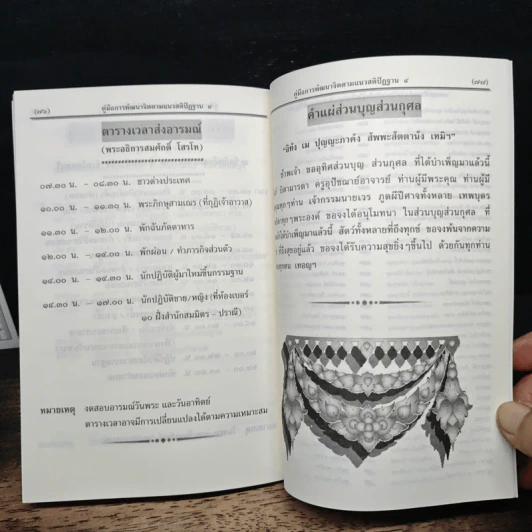 (๗๖) คู่มือการพัฒนาจิตตามแนวสติปัฏฐาน ๔
ตารางเวลาส่งอารมณ์
(พระอธิการสมศักดิ์ โสรโท)
************************
๐๗.๓๐ น. - ๐๘.๓๐ น. ชาวต่างประเทศ
๑๐.๐๐ น. - ๑๑.๓๐ น. พระภิกษุสามเณร (ที่กุฏิเจ้าอาวาส)
๑๑.๓๐ น. - ๑๒.๐๐ น. พักฉันภัตตาหาร
๑๒.๐๐ น. - ๑๔.๐๐ น. พักผ่อน / ทำภารกิจส่วนตัว
๑๔.๐๐ น. - ๑๔.๓๐ น. นักปฏิบัติผู้มาใหม่ขึ้นกรรมฐาน
๑๔.๓๐ น. - ๑๗.๐๐ น. นักปฏิบัติชาย/หญิง (ที่ห้องเบอร์
๑๐ ฝั่งสำนักสมมิตร - ปราณี)
หมายเหตุ งดสอบอารมณ์วันพระ และวันอาทิตย์
ตารางเวลาอาจมีการเปลี่ยนแปลงได้ตามความเหมาะสม
คู่มือการพัฒนาจิตตามแนวสติปัฏฐาน ๔ (๗๗)
คำแผ่ส่วนบุญส่วนกุศล
"อิทัง เม ปุญญะภาคัง สัพพะสัตตานัง เทมิฯ"
ข้าพเจ้า ขออุทิศส่วนบุญ ส่วนกุศล ที่ได้บำเพ็ญมาแล้วนี้
บิดามารดา ครูอุปัชฌาย์อาจารย์ ท่านผู้มีพระคุณ ท่านผู้มี
ทุกๆท่าน เจ้ากรรมนายเวร ภูตผีปีศาจทั้งหลาย เทพบุตร
ทุกๆพระองค์ ขอจงได้อนุโมทนา ในส่วนบุญส่วนกุศล ที่
ได้บำเพ็ญมาแล้วนี้ สัตว์ทั้งหลายที่ถึงทุกข์ ขอจงพ้นจากความ
ที่ถึงสุขอยู่แล้ว ขอจงได้รับความสุขยิ่งๆขึ้นไป ด้วยกันทุกท่าน
เทอญฯ